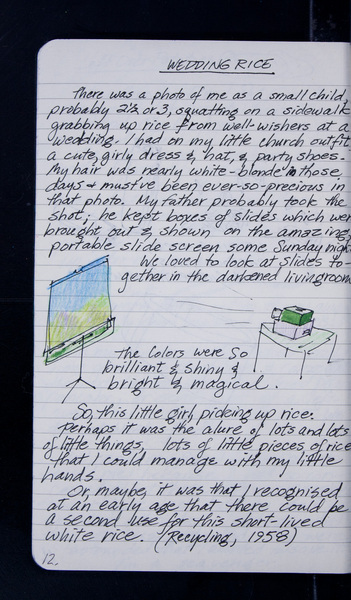 WEDDING RICE
There was a photo of me as a small child,
probably 2½ or 3, squatting on a sidewalk
grabbing up rice from well-wishers at a
wedding. I had on my little church outfit
a cute, girly dress & hat, & party shoes.
My hair was nearly white-blonde in those
days & must've been ever-so-precious in
that photo. My father probably took the
shot; he kept boxes of slides which were
brought out & shown on the amazing,
portable slide screen some Sunday nights
We loved to look at slides to-
gether in the darkened livingroom
The colors were so
brilliant & shiny &
bright & magical.
So, this little girl, picking up rice.
Perhaps it was the alure of lots and lots
of little things, lots of little pieces of rice
that I could manage with my little
hands.
Or, maybe, it was that I recognised
at an early age that there could be
a second use for this short-lived
white rice. (Recycling, 1958)
12.